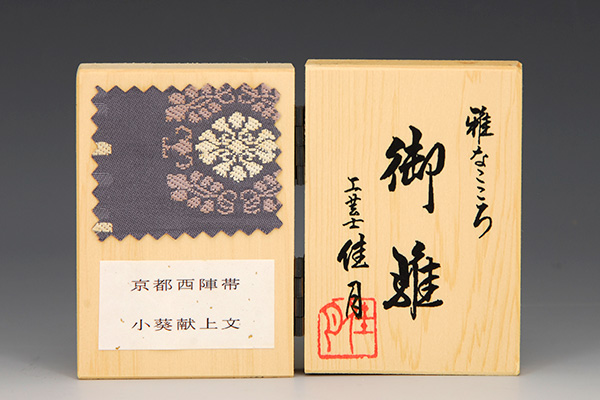 京都西陣帯
小葵献上文
雅なこころ
御雛
工芸士 佳月
佳月